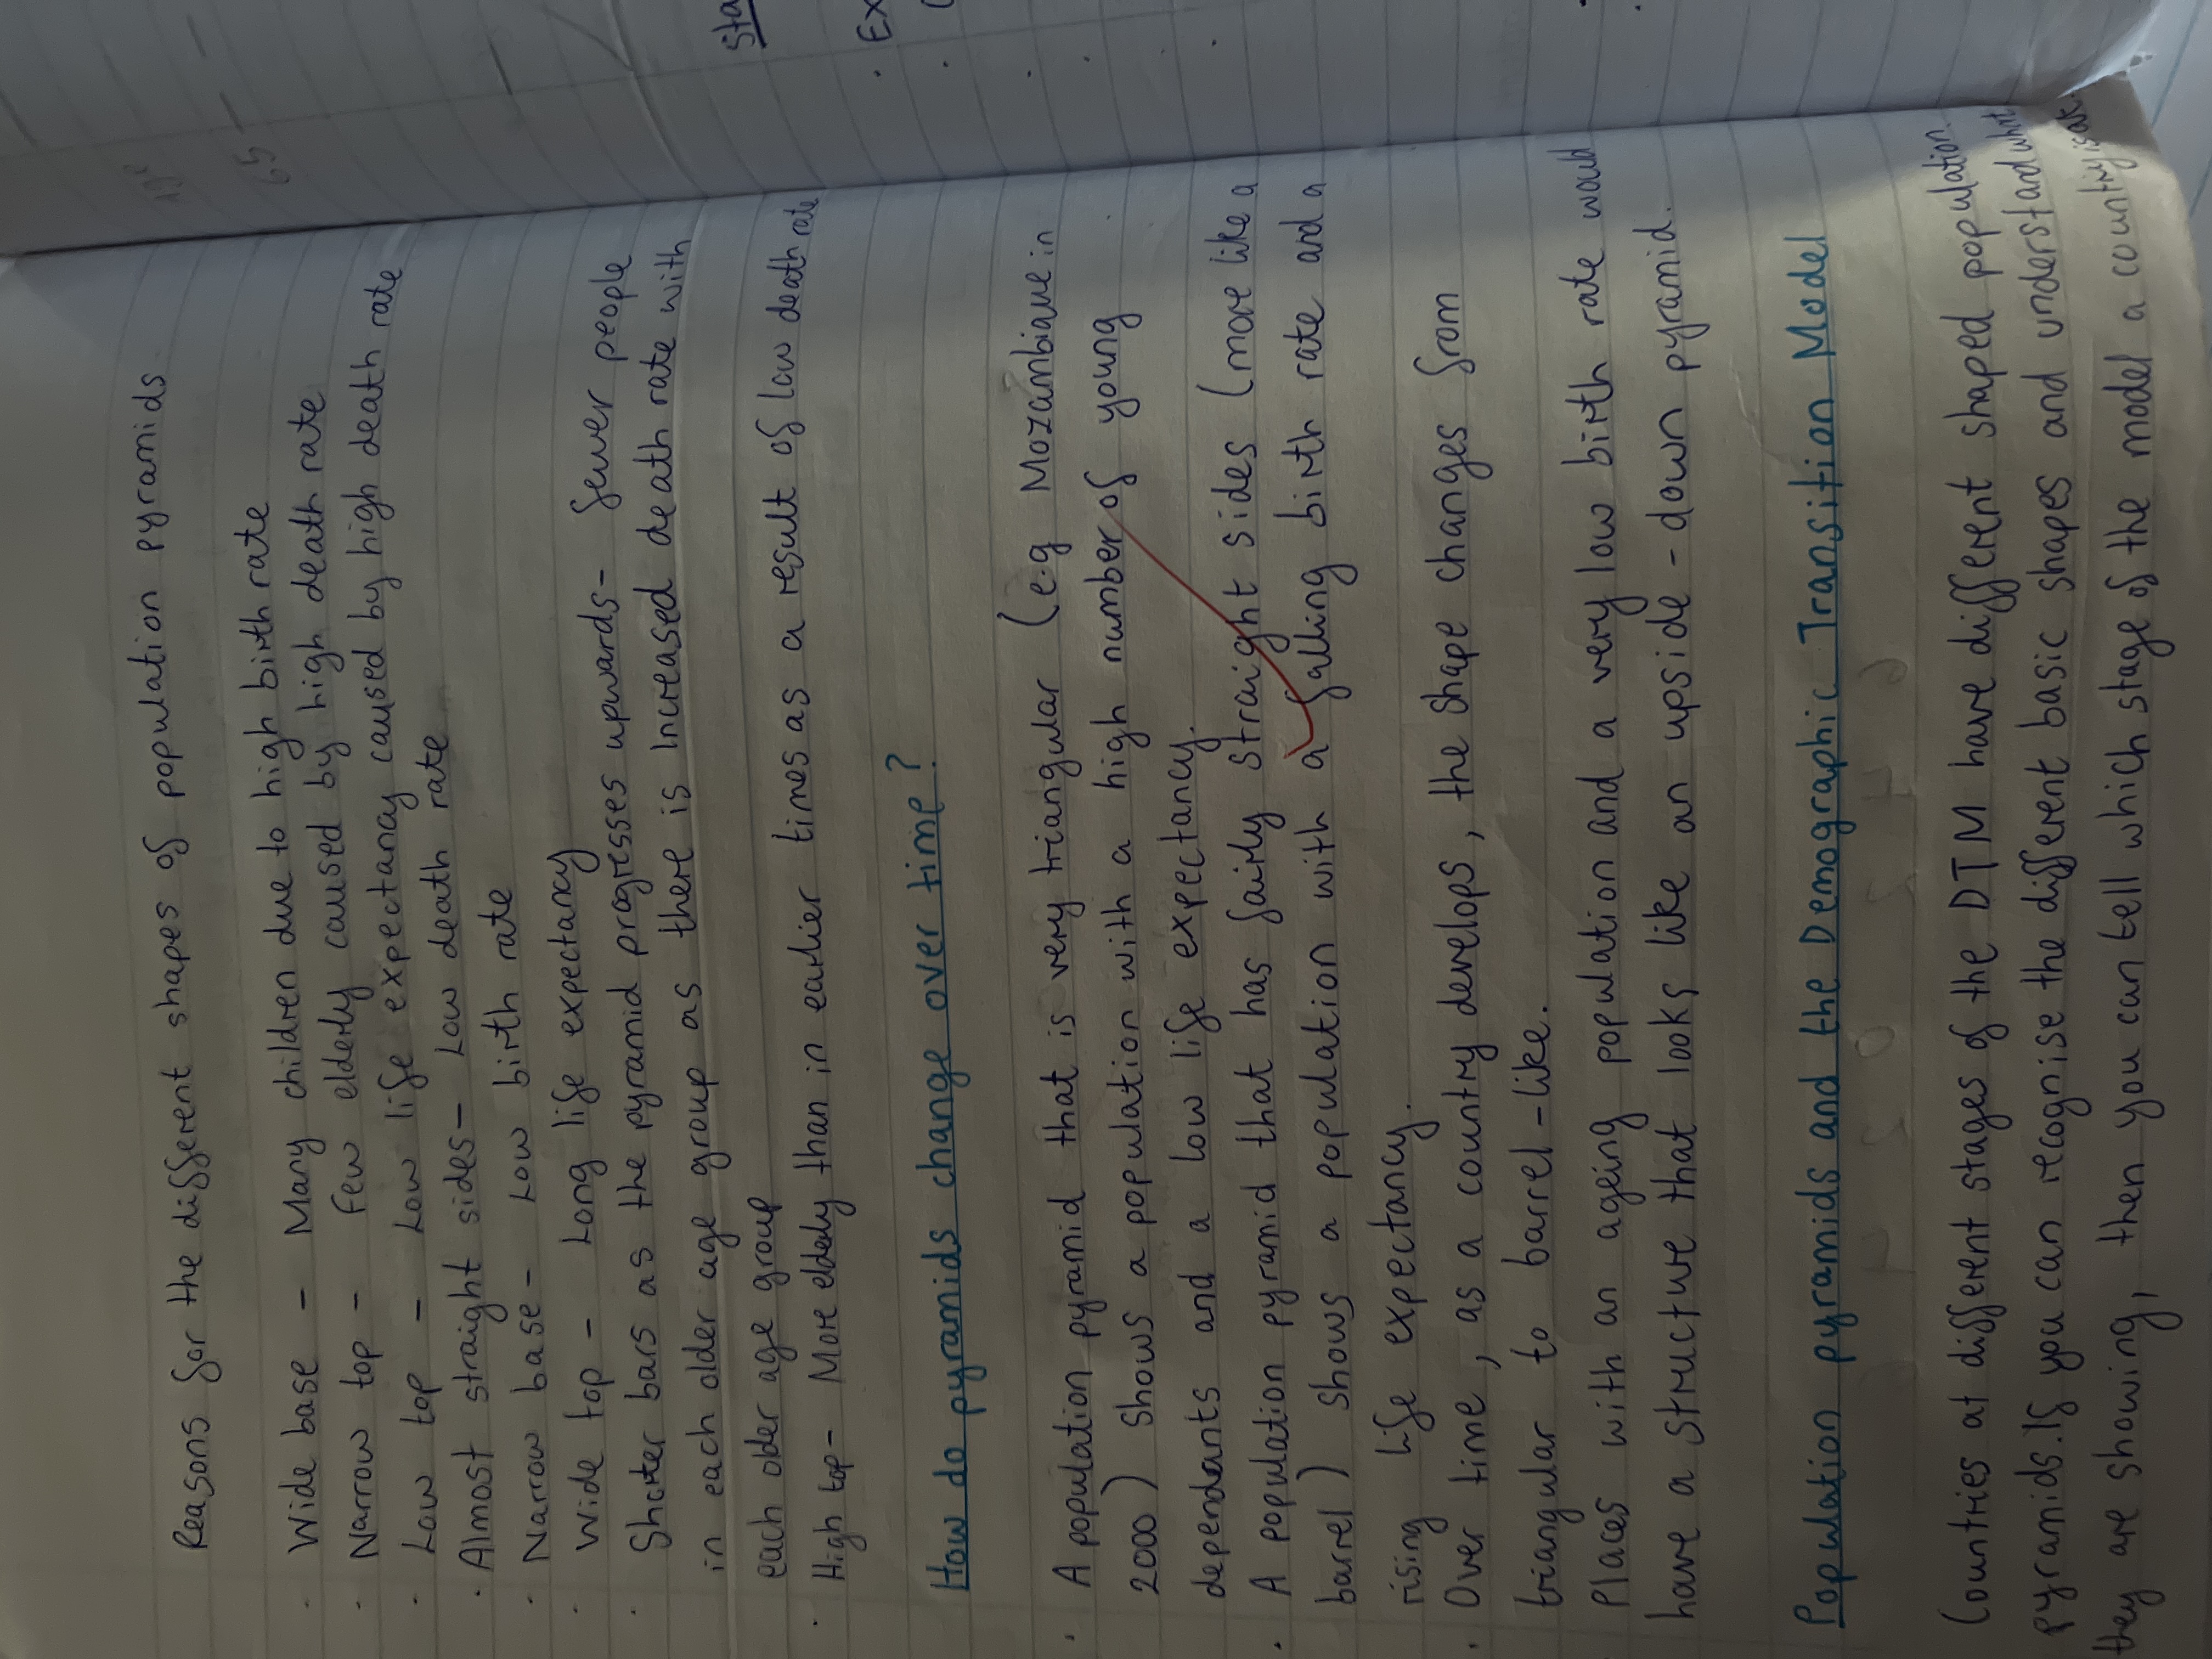 Reasons for the different shapes of population pyramids
· Wide base - Many children due to high birth rate
· Narrow top - Few elderly caused by high death rate
· Low top - Low life expectancy caused by high death rate
· Almost straight sides - Low death rate
· Narrow base - Low birth rate
· Wide top - Long life expectancy
· Shorter bars as the pyramid progresses upwards - fewer people
in each older age group as there is increased death rate with
each older age group
· High top - More elderly than in earlier times as a result of low death rate
How do pyramids change over time?
· A population pyramid that is very triangular (e.g Mozambique in
2000) shows a population with a high number of young
dependants and a low life expectancy.
· A population pyramid that has fairly straight sides (more like a
barrel) shows a population with a falling birth rate and a
rising life expectancy.
· Over time, as a country develops, the shape changes from
triangular to barrel-like.
Places with an ageing population and a very low birth rate would
have a structure that looks like an upside-down pyramid.
Population pyramids and the Demographic Transition Model
Countries at different stages of the DTM have different shaped population
pyramids. If you can recognise the different basic shapes and understand what
they are showing, then you can tell which stage of the model a country is at.
65
Sta
· Ex